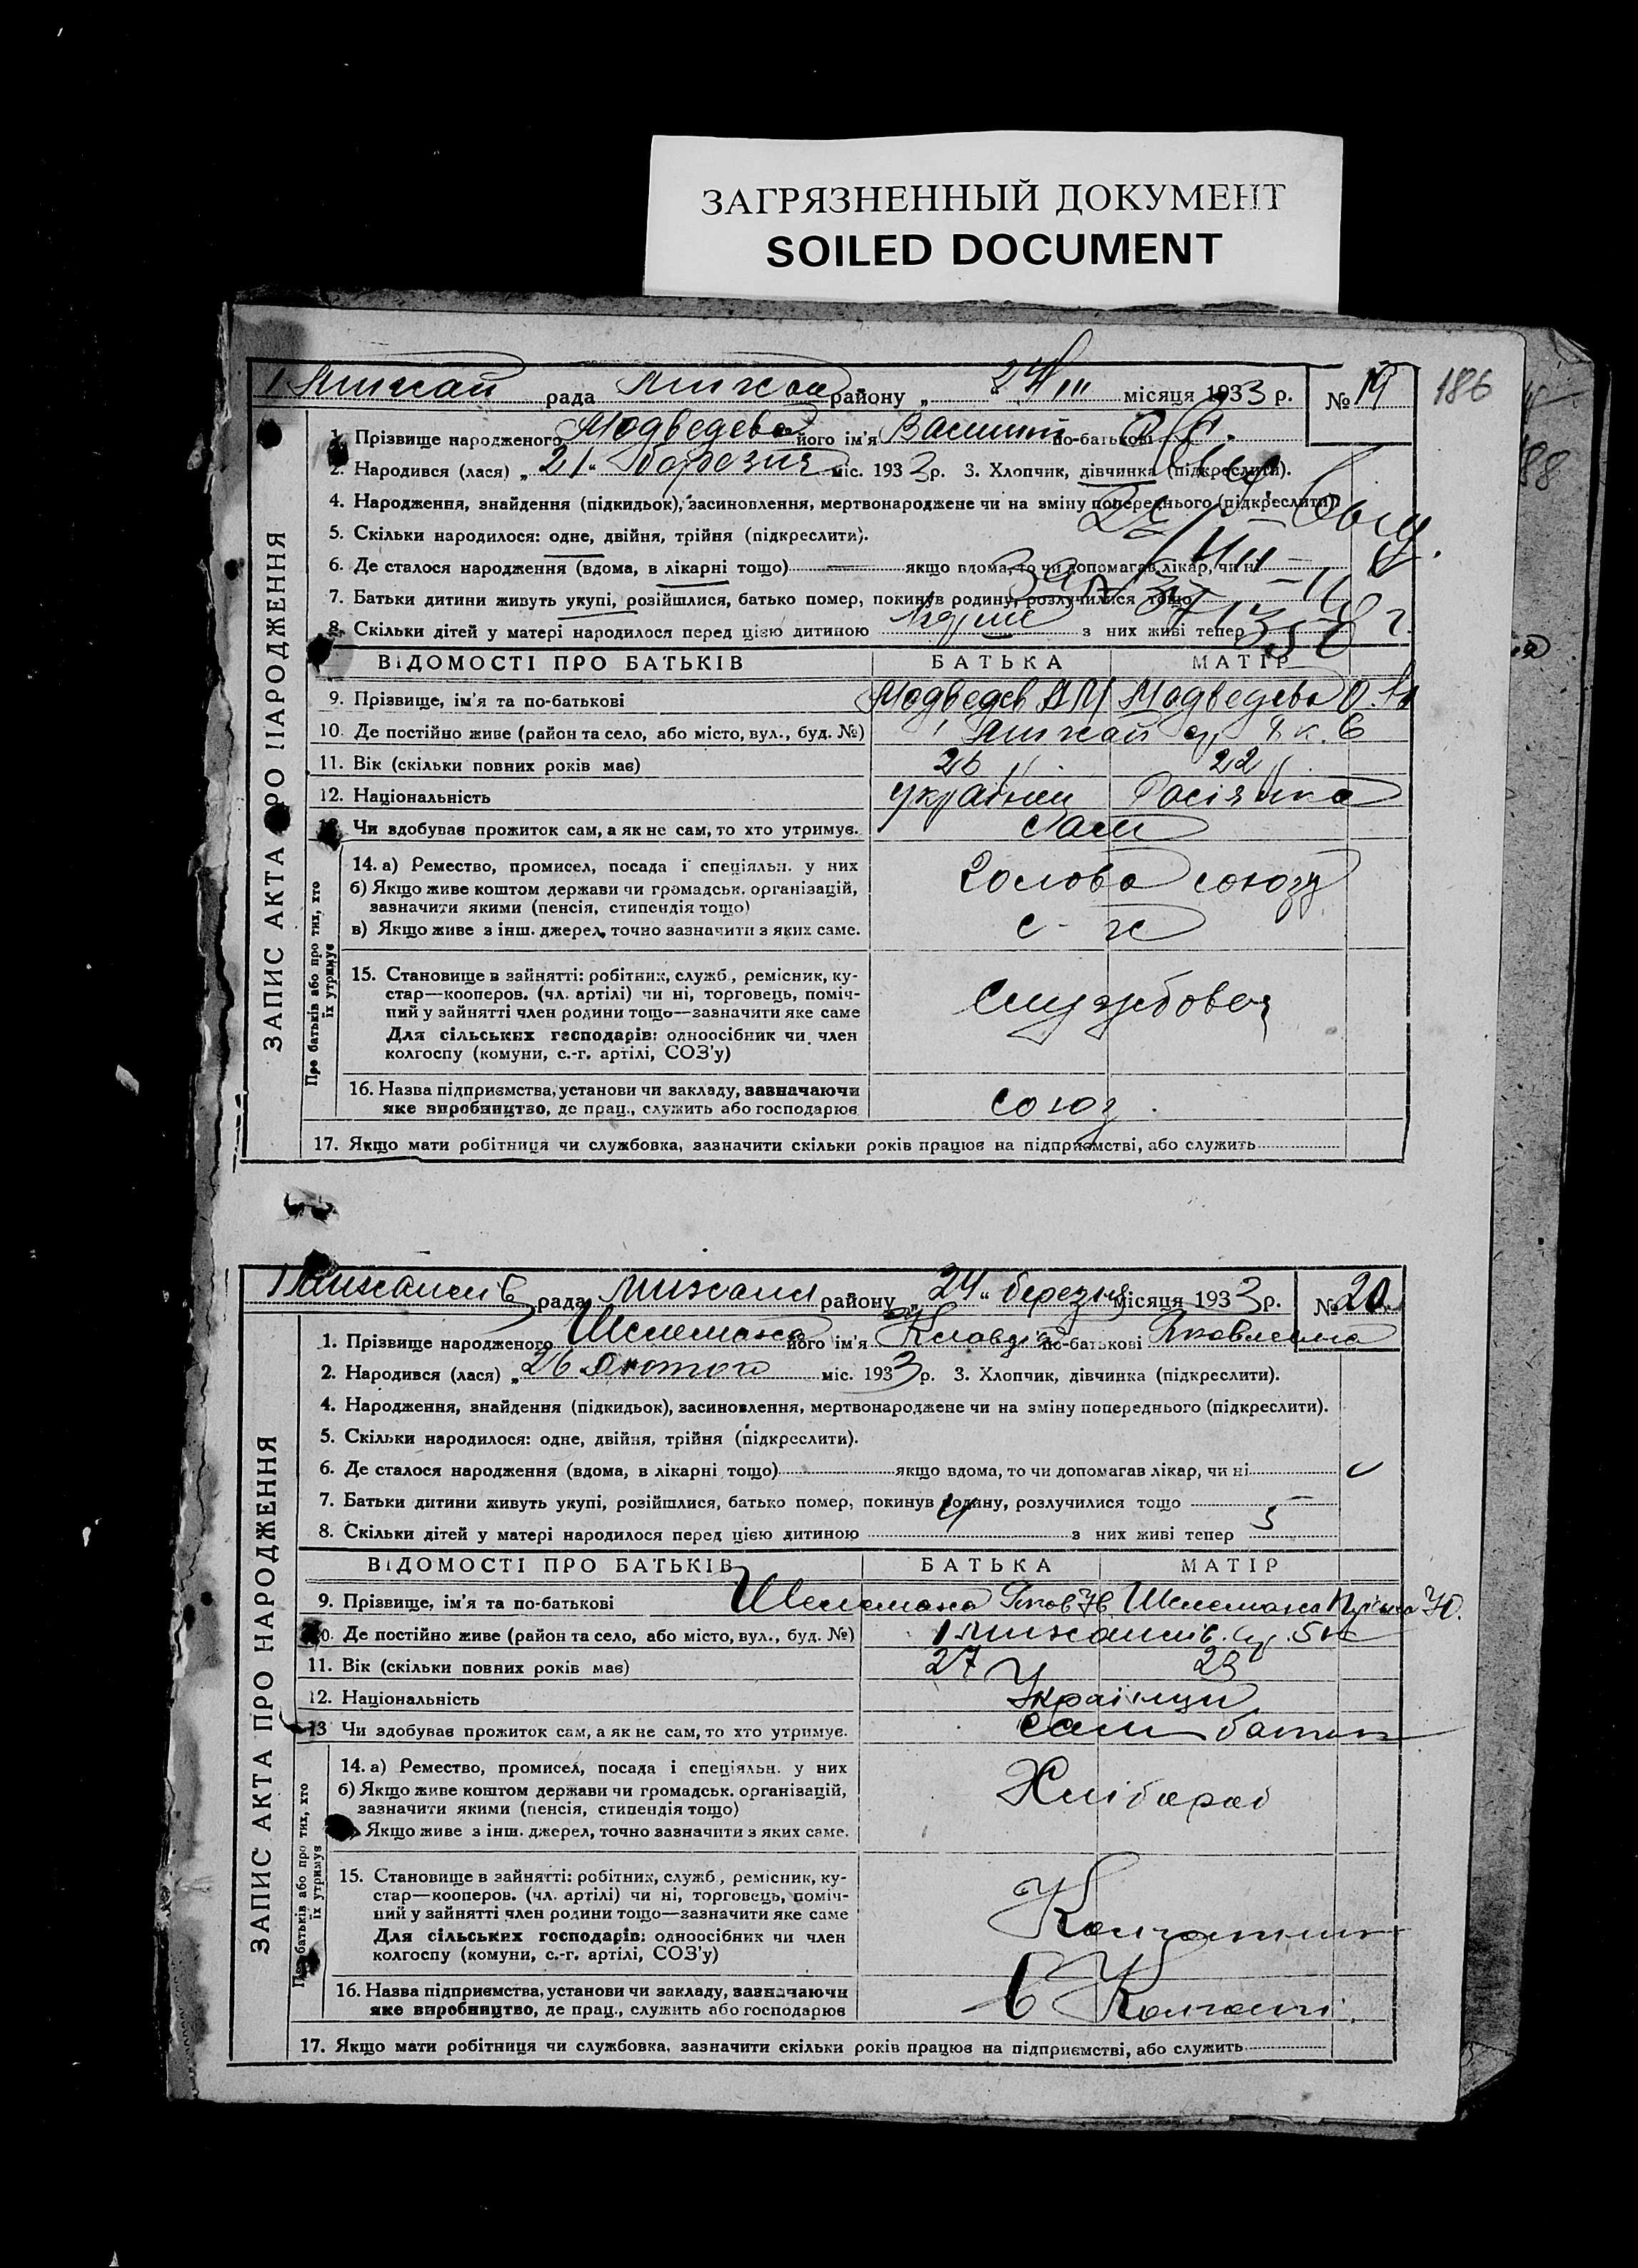 ЗАГРЯЗНЕННЫЙ ДОКУМЕНТ
SOILED DOCUMENT
186
рада району „ “ 24/III місяця 1933 р. № 19
1. Прізвище народженого Медведева його ім'я по-батькові
2. Народився (лася) „21“ березня міс. 1933 р. 3. Хлопчик, дівчинка (підкреслити).
4. Народження, знайдення (підкидьок), засиновлення, мертвонароджене чи на зміну попереднього (підкреслити).
5. Скільки народилося: одне, двійня, трійня (підкреслити).
6. Де сталося народження (вдома, в лікарні тощо) якщо вдома, то чи допомагав лікар, чи ні
7. Батьки дитини живуть укупі, розійшлися, батько помер, покинув родину, розлучилися тощо
8. Скільки дітей у матері народилося перед цією дитиною з них живі тепер
ВІДОМОСТІ ПРО БАТЬКІВ БАТЬКА МАТІР
9. Прізвище, ім'я та по-батькові Медведев Медведева
10. Де постійно живе (район та село, або місто, вул., буд. №)
11. Вік (скільки повних років має) 26 22
12. Національність українец Росіянка
13. Чи здобував прожиток сам, а як не сам, то хто утримує. Сам
14. а) Ремество, промисел, посада і спеціяльн. у них
б) Якщо живе коштом держави чи громадськ. організацій,
зазначити якими (пенсія, стипендія тощо)
в) Якщо живе з інш. джерел, точно зазначити з яких саме.
Голова союзу
с-г
15. Становище в зайнятті: робітник, служб., ремісник, ку-
стар—кооперов. (чл. артілі) чи ні, торговець, поміч-
ний у зайнятті член родини тощо—зазначити яке саме
Для сільських господарів: одноосібник чи член
колгоспу (комуни, с.-г. артілі, СОЗ'у)
Службовец
16. Назва підприємства, установи чи закладу, зазначаючи
яке виробництво, де прац., служить або господарює
союз
17. Якщо мати робітниця чи службовка, зазначити скільки років працює на підприємстві, або служить
ЗАПИС АКТА ПРО НАРОДЖЕННЯ
Про батьків або про тих, хто
їх утримує
рада району „24“ березня місяця 1933 р. № 20
1. Прізвище народженого Шелемаха його ім'я Клавдія по-батькові Яковлевна
2. Народився (лася) „26 лютого міс. 1933 р. 3. Хлопчик, дівчинка (підкреслити).
4. Народження, знайдення (підкидьок), засиновлення, мертвонароджене чи на зміну попереднього (підкреслити).
5. Скільки народилося: одне, двійня, трійня (підкреслити).
6. Де сталося народження (вдома, в лікарні тощо) якщо вдома, то чи допомагав лікар, чи ні
7. Батьки дитини живуть укупі, розійшлися, батько помер, покинув родину, розлучилися тощо
8. Скільки дітей у матері народилося перед цією дитиною 4 з них живі тепер 5
ВІДОМОСТІ ПРО БАТЬКІВ БАТЬКА МАТІР
9. Прізвище, ім'я та по-батькові Шелемаха Яков Шелемаха
10. Де постійно живе (район та село, або місто, вул., буд. №)
11. Вік (скільки повних років має) 27
12. Національність Українци
13 Чи здобував прожиток сам, а як не сам, то хто утримує. сам батько
14. а) Ремество, промисел, посада і спеціяльн. у них
б) Якщо живе коштом держави чи громадськ. організацій,
зазначити якими (пенсія, стипендія тощо)
Якщо живе з інш. джерел, точно зазначити з яких саме.
Хлібороб
15. Становище в зайнятті: робітник, служб., ремісник, ку-
стар—кооперов. (чл. артілі) чи ні, торговець, поміч-
ний у зайнятті член родини тощо—зазначити яке саме
Для сільських господарів: одноосібник чи член
колгоспу (комуни, с.-г. артілі, СОЗ'у)
Колгоспник
16. Назва підприємства, установи чи закладу, зазначаючи
яке виробництво, де прац., служить або господарює
в Колгоспі
17. Якщо мати робітниця чи службовка, зазначити скільки років працює на підприємстві, або служить
ЗАПИС АКТА ПРО НАРОДЖЕННЯ
батьків або про тих, хто
їх утримує